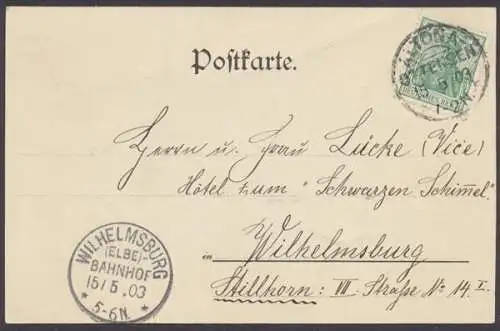 Postkarte.
ALTONA
5 03
1-2N.
Herrn u. Frau Lücke (Vice)
Hôtel zum "Schwarzen Schimmel"
in Wilhelmsburg
Stillhorn: III Straße No 14 I.
WILHELMSBURG
(ELBE)-
BAHNHOF
15/5.03
* 5-6N. *